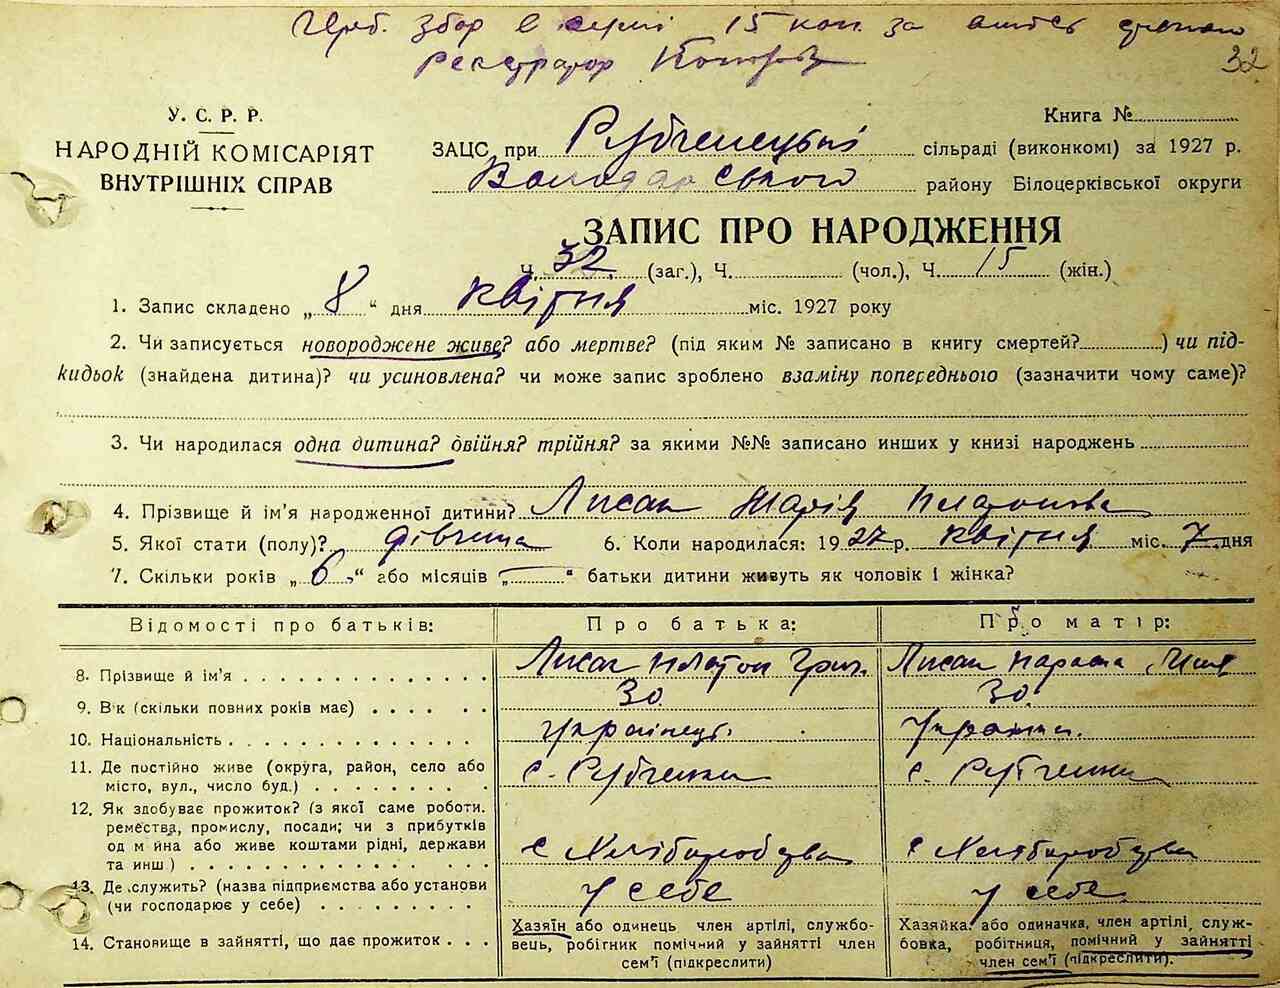 Герб. збор в сумі 15 коп. за
реєстратор
32
У. С. Р. Р.
НАРОДНІЙ КОМІСАРІЯТ
ВНУТРІШНІХ СПРАВ
Книга №
ЗАЦС при Рубченецькій сільраді (виконкомі) за 1927 р.
Володарського району Білоцерківської округи
ЗАПИС ПРО НАРОДЖЕННЯ
Ч. 32 (заг.), Ч. (чол.), Ч. 15 (жін.)
1. Запис складено „8“ дня квітня міс. 1927 року
2. Чи записується новороджене живе? або мертве? (під яким № записано в книгу смертей? ) чи під-
кидьок (знайдена дитина)? чи усиновлена? чи може запис зроблено взаміну попереднього (зазначити чому саме)?
3. Чи народилася одна дитина? двійня? трійня? за якими №№ записано инших у книзі народжень
4. Прізвище й ім'я народженної дитини? Лисак Марія Платонова
5. Якої стати (полу)? дівчина 6. Коли народилася: 1927 р. квітня міс. 7 дня
7. Скільки років „6“ або місяців „—“ батьки дитини живуть як чоловік і жінка?
Відомості про батьків: Про батька: Про матір:
8. Прізвище й ім'я Лисак Платон Григ. Лисак Параска
9. Вік (скільки повних років має) 30 30
10. Національність українець українка
11. Де постійно живе (округа, район, село або с. Рубченки с. Рубченки
місто, вул., число буд.)
12. Як здобуває прожиток? (з якої саме роботи,
ремества, промислу, посади; чи з прибутків
од майна або живе коштами рідні, держави
та инш.) є Хліборобства є Хліборобства
13. Де служить? (назва підприємства або установи у себе у себе
(чи господарює у себе)
14. Становище в зайнятті, що дає прожиток
Хазяїн або одинець член артілі, службо-
вець, робітник помічний у зайнятті член
сем'ї (підкреслити)
Хазяйка або одиначка, член артілі, служ-
бовка, робітниця, помічний у зайнятті
член сем'ї (підкреслити).